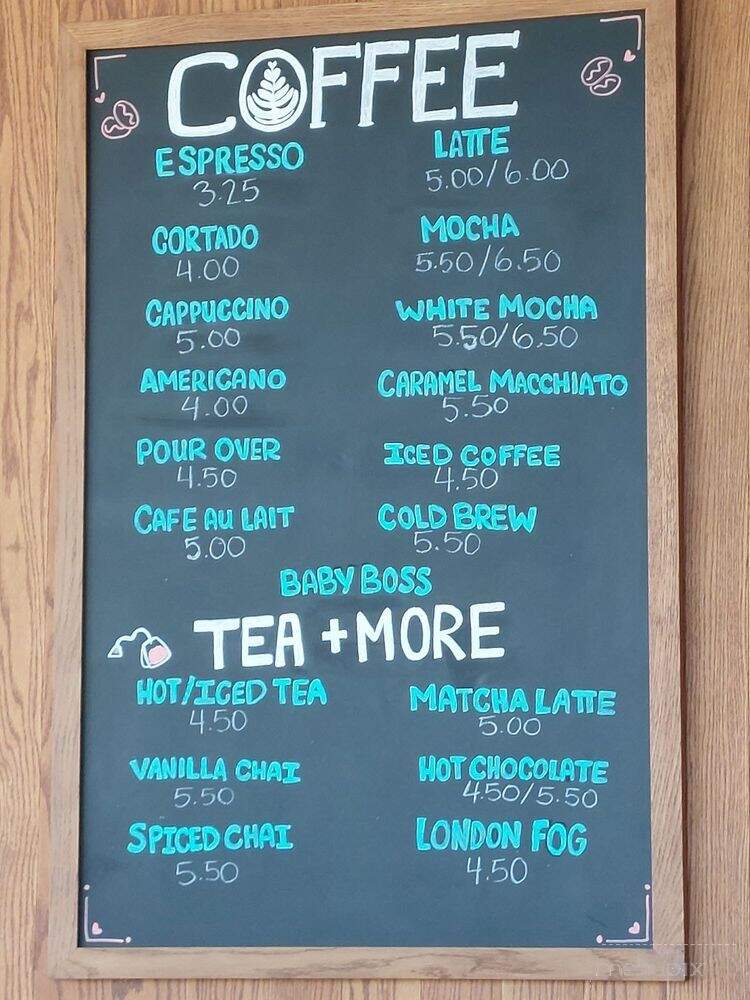 COFFEE
ESPRESSO
3.25
CORTADO
4.00
CAPPUCCINO
5.00
AMERICANO
4.00
POUR OVER
4.50
CAFE AU LAIT
5.00
LATTE
5.00/6.00
MOCHA
5.50/6.50
WHITE MOCHA
5.50/6.50
CARAMEL MACCHIATO
5.50
ICED COFFEE
4.50
COLD BREW
5.50
BABY BOSS
TEA + MORE
HOT/ICED TEA
4.50
VANILLA CHAI
5.50
SPICED CHAI
5.50
MATCHA LATTE
5.00
HOT CHOCOLATE
4.50/5.50
LONDON FOG
4.50